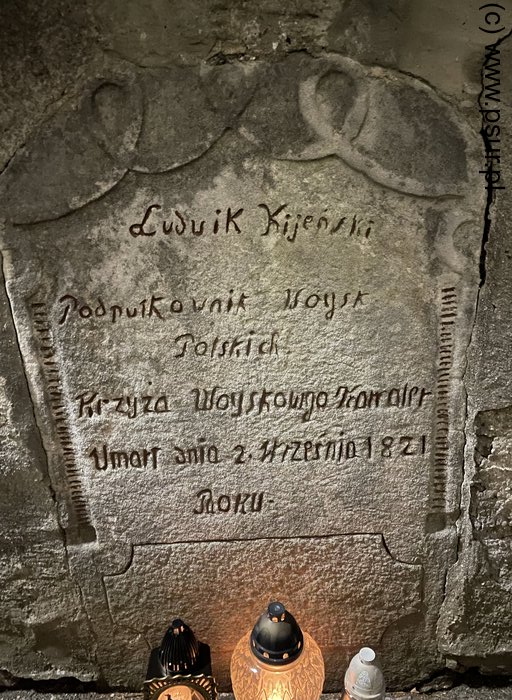 Ludwik Kijeński
Podpułkownik Woysk
Polskich.
Krzyża Woyskowgo Kawaler
Umarł dnia 2. Września 1821
Roku-
(c) www.psur.pl